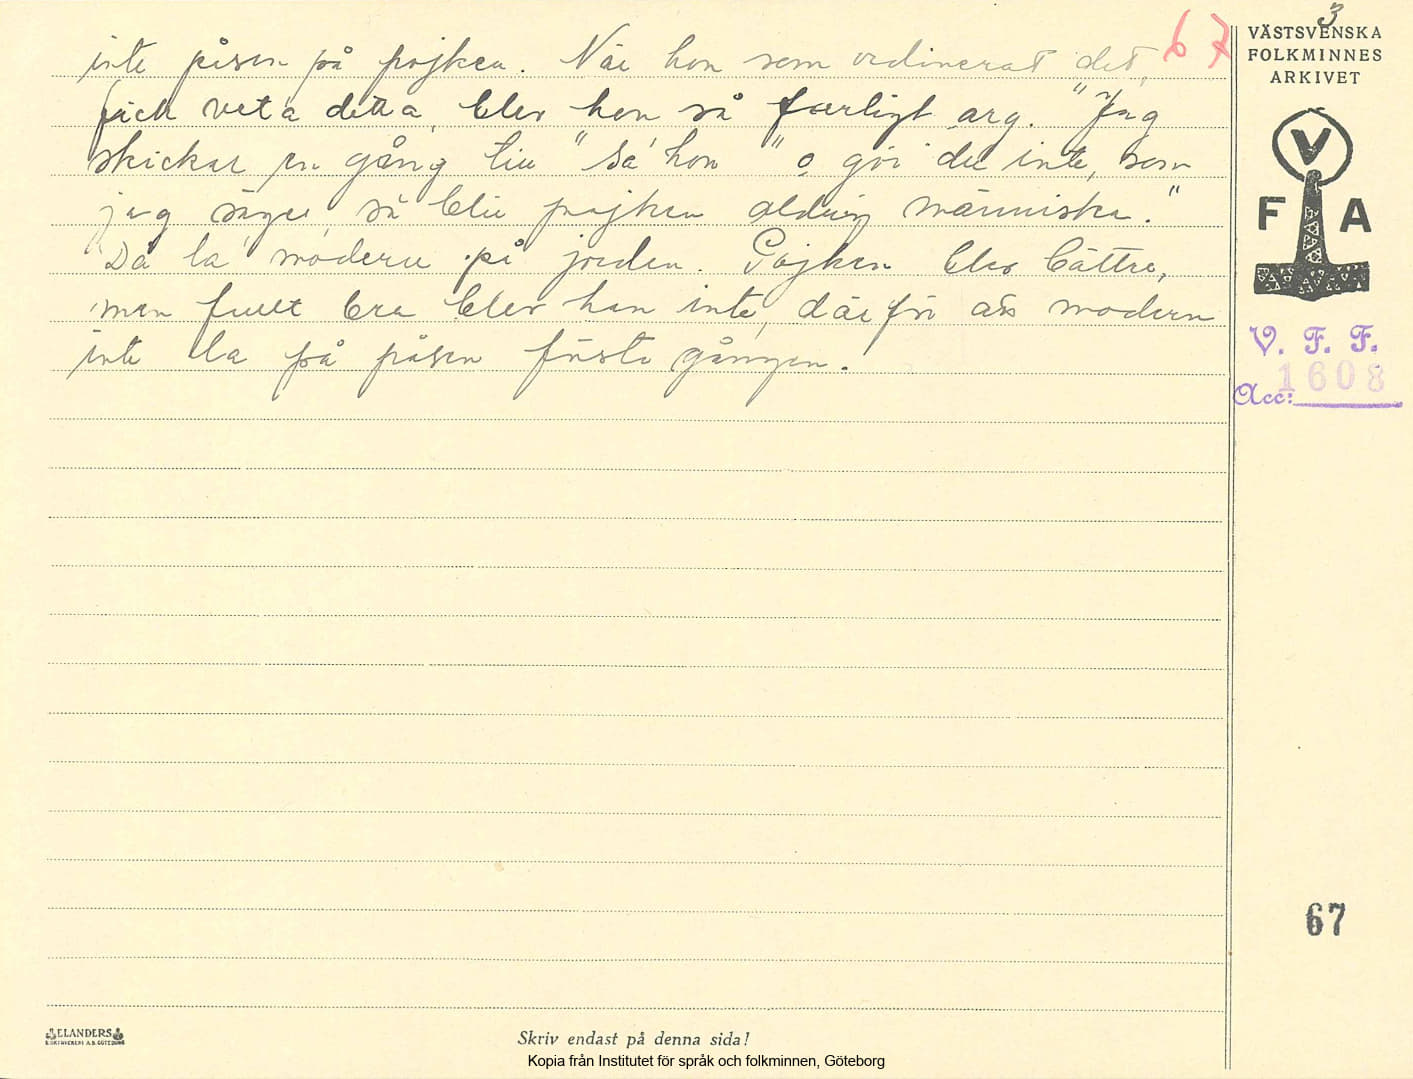 inte påsen på pojken. När hon som ordinerat det, 67
fick veta detta, blev hon så farligt arg. "Jag
skickar en gång till" sa' hon "o gör du inte, som
jag säger, så blir pojken aldrig människa."
Då la' modern på jorden. Pojken blev bättre,
men fullt bra blev han inte, därför att modern
inte la på påsen första gången.
3
VÄSTSVENSKA
FOLKMINNES
ARKIVET
V
F A
V. F. F.
1608
Acc:
67
ELANDERS
BOKTRYCKERI A.B. GÖTEBORG
Skriv endast på denna sida!
Kopia från Institutet för språk och folkminnen, Göteborg